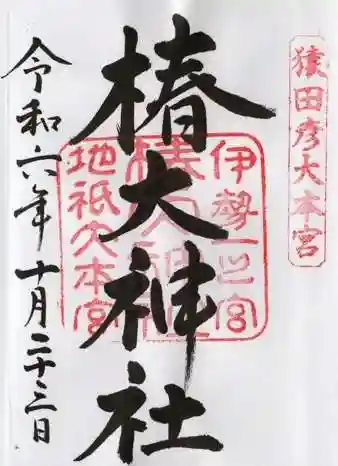 猿田彦大本宮
伊勢一之宮
椿大神社
地祇大本宮
椿大神社
令和六年十月二十三日